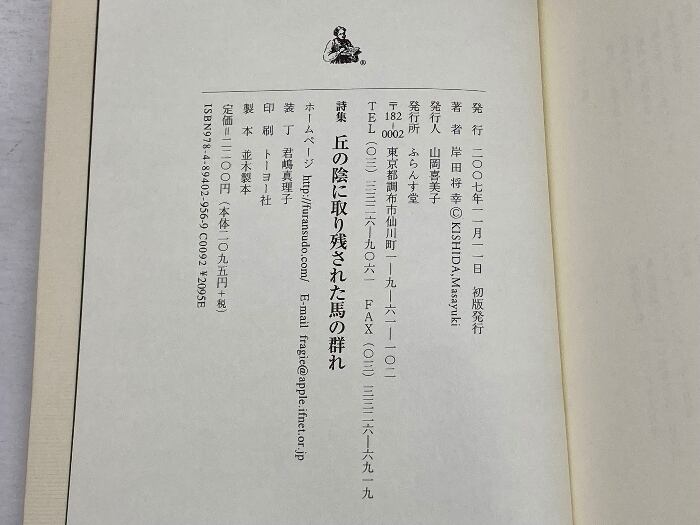 発行 二〇〇七年一一月一一日 初版発行
著者 岸田将幸Ⓒ KISHIDA,Masayuki
発行人 山岡喜美子
発行所 ふらんす堂
〒182-0002 東京都調布市仙川町一―九―六一―一〇二
TEL(〇三)三三二六―九〇六一 FAX(〇三)三三二六―六九一九
詩集 丘の陰に取り残された馬の群れ
ホームページ http://furansudo.com/ E-mail fragie@apple.ifnet.or.jp
装丁 君嶋真理子
印刷 トーヨー社
製本 並木製本
定価=二二〇〇円(本体二〇九五円+税)
ISBN978-4-89402-956-9 C0092 ¥2095E
®